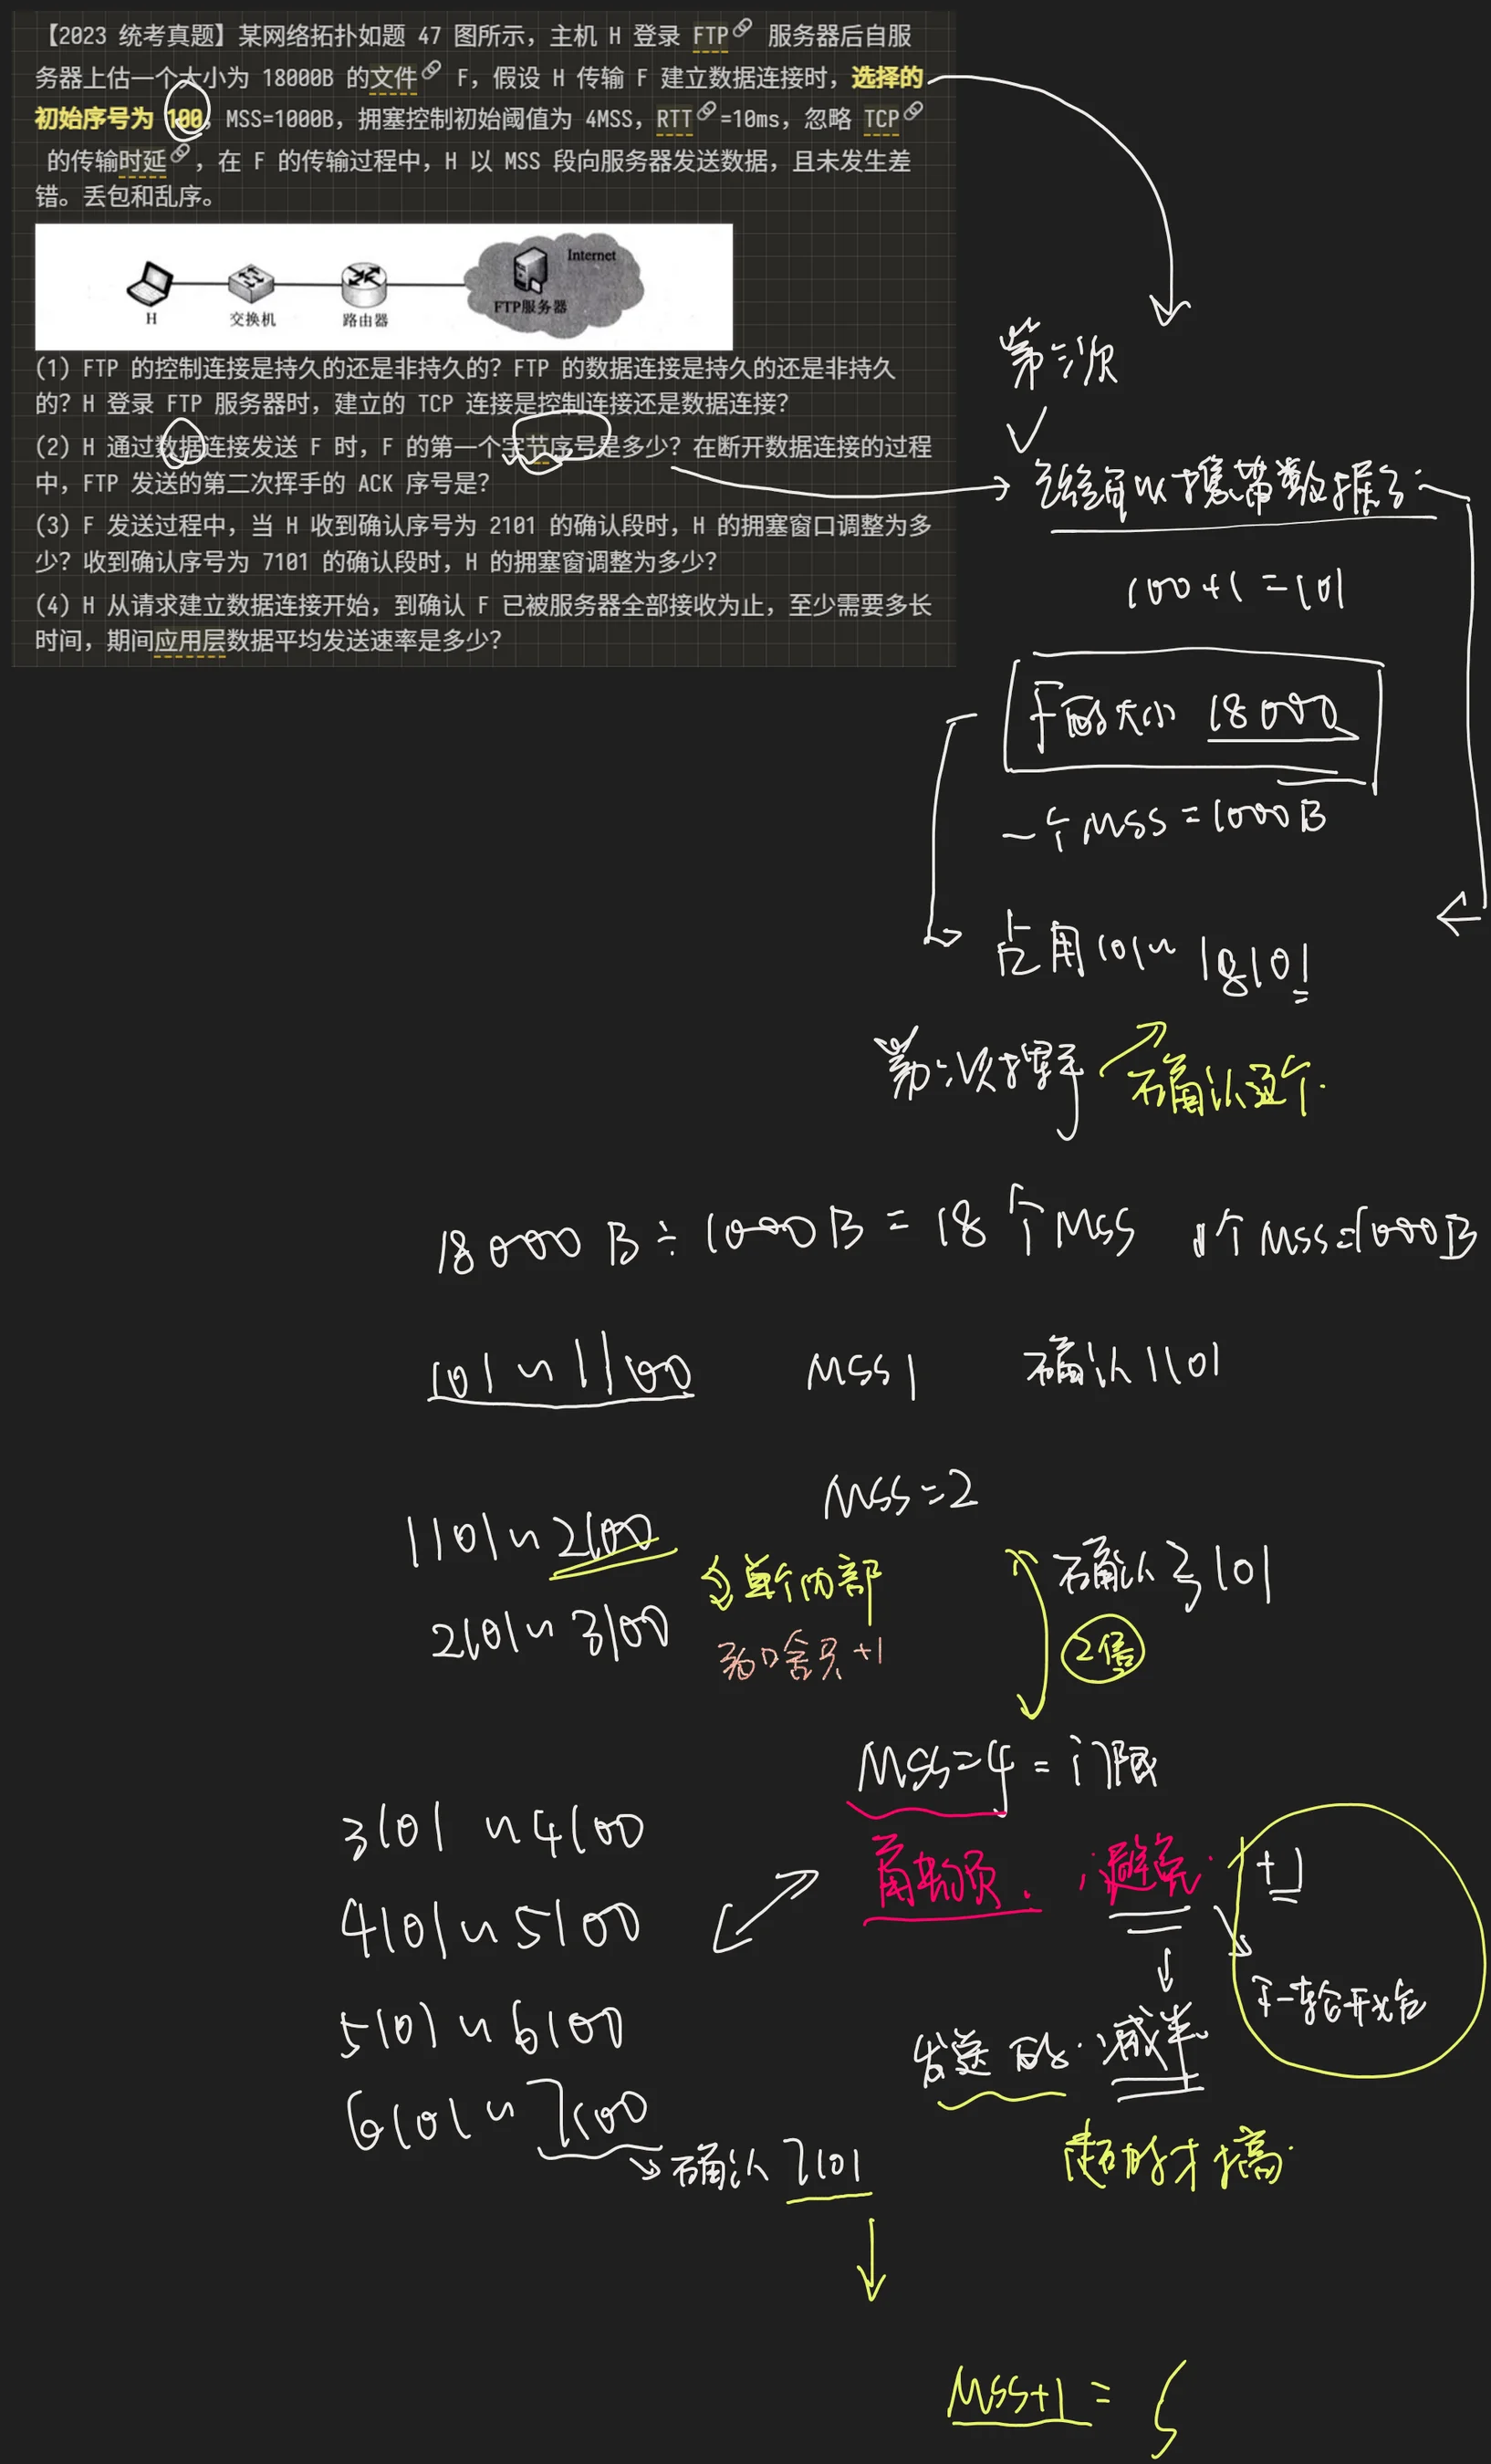 【2023 统考真题】某网络拓扑如题 47 图所示，主机 H 登录 FTP 服务器后自服
务器上估一个大小为 18000B 的文件 F，假设 H 传输 F 建立数据连接时，选择的
初始序号为 100，MSS=1000B，拥塞控制初始阈值为 4MSS，RTT=10ms，忽略 TCP
的传输时延，在 F 的传输过程中，H 以 MSS 段向服务器发送数据，且未发生差
错。丢包和乱序。
Internet
FTP服务器
H
交换机
路由器
(1) FTP 的控制连接是持久的还是非持久的？FTP 的数据连接是持久的还是非持久
的？H 登录 FTP 服务器时，建立的 TCP 连接是控制连接还是数据连接？
(2) H 通过数据连接发送 F 时，F 的第一个字节序号是多少？在断开数据连接的过程
中，FTP 发送的第二次挥手的 ACK 序号是？
(3) F 发送过程中，当 H 收到确认序号为 2101 的确认段时，H 的拥塞窗口调整为多
少？收到确认序号为 7101 的确认段时，H 的拥塞窗调整为多少？
(4) H 从请求建立数据连接开始，到确认 F 已被服务器全部接收为止，至少需要多长
时间，期间应用层数据平均发送速率是多少？
第三次
可以携带数据了
100+1=101
F的大小 18000
一个MSS=1000B
占用101~18101
第二次挥手
确认这个
18000B÷1000B=18个MSS
1个MSS=1000B
101~1100 MSS1 确认1101
MSS=2
1101~2100
单个内部
确认3101
2101~3100
窗口会只+1
2倍
MSS=4=门限
3101~4100
避免
+1
4101~5100
下一轮开始
5101~6100
发送的 减半
6101~7100
确认7101
超时才搞
MSS+1=5